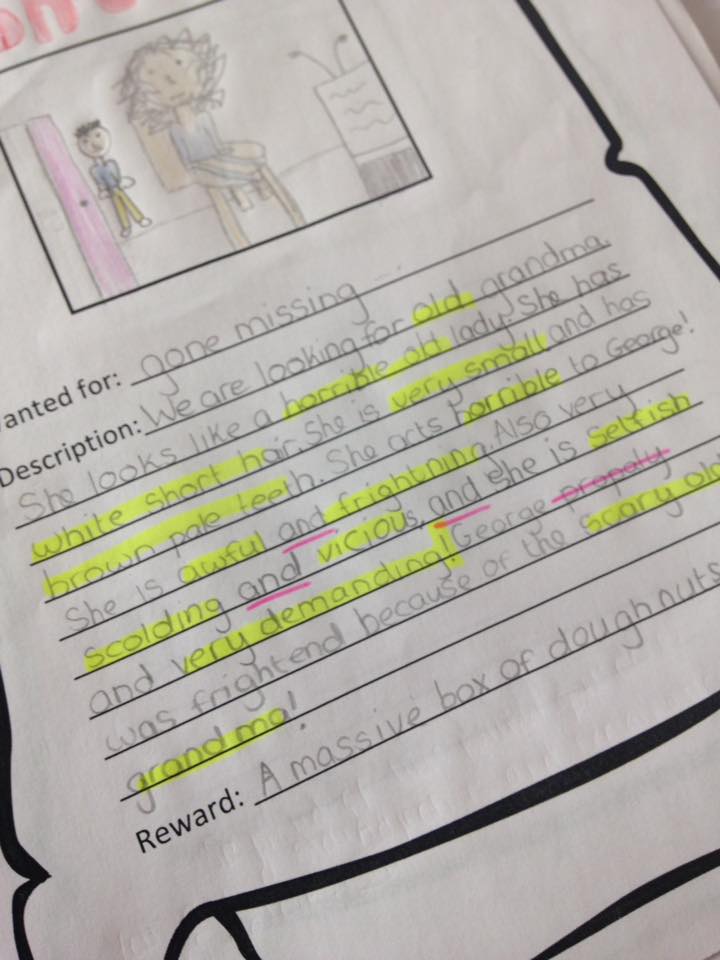 Wanted for: gone missing
Description: We are looking for old grandma.
She looks like a horrible old lady. She has
white short hair. She is very small and has
brown pale teeth. She acts horrible to George!
She is awful and frightning. Also very
scolding and vicious, and she is selfish
and very demanding! George propaly
was frightend because of the scary old
grandma!
Reward: A massive box of dough nuts